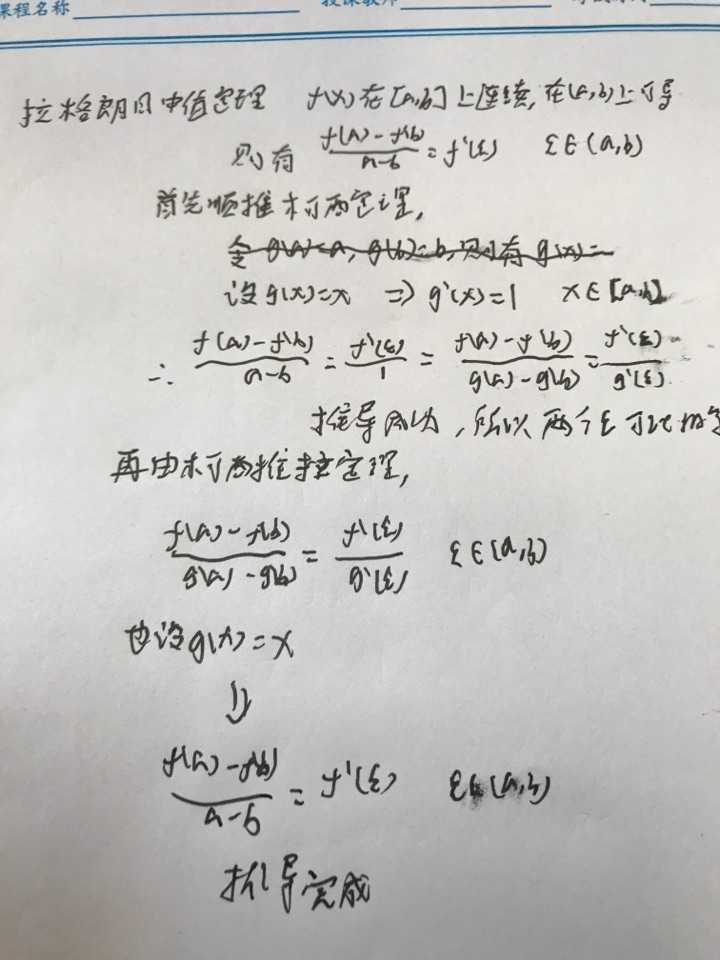 课程名称
授课教师
拉格朗日中值定理 f(x)在[a,b]上连续,在(a,b)上可导
则有 \frac{f(a)-f(b)}{a-b} = f'(ξ) ξ∈(a,b)
首先顺推柯西定理,
令g(a)=a, g(b)=b,则有g(x)=
设g(x)=x ⇒ g'(x)=1 x∈[a,b]
∴ \frac{f(a)-f(b)}{a-b} = \frac{f'(ξ)}{1} = \frac{f(a)-f(b)}{g(a)-g(b)} = \frac{f'(ξ)}{g'(ξ)}
推导成功,所以两个ξ可以相等
再由柯西推拉定理,
\frac{f(a)-f(b)}{g(a)-g(b)} = \frac{f'(ξ)}{g'(ξ)} ξ∈(a,b)
也设g(x)=x
⇓
\frac{f(a)-f(b)}{a-b} = f'(ξ) ξ∈(a,b)
推导完成